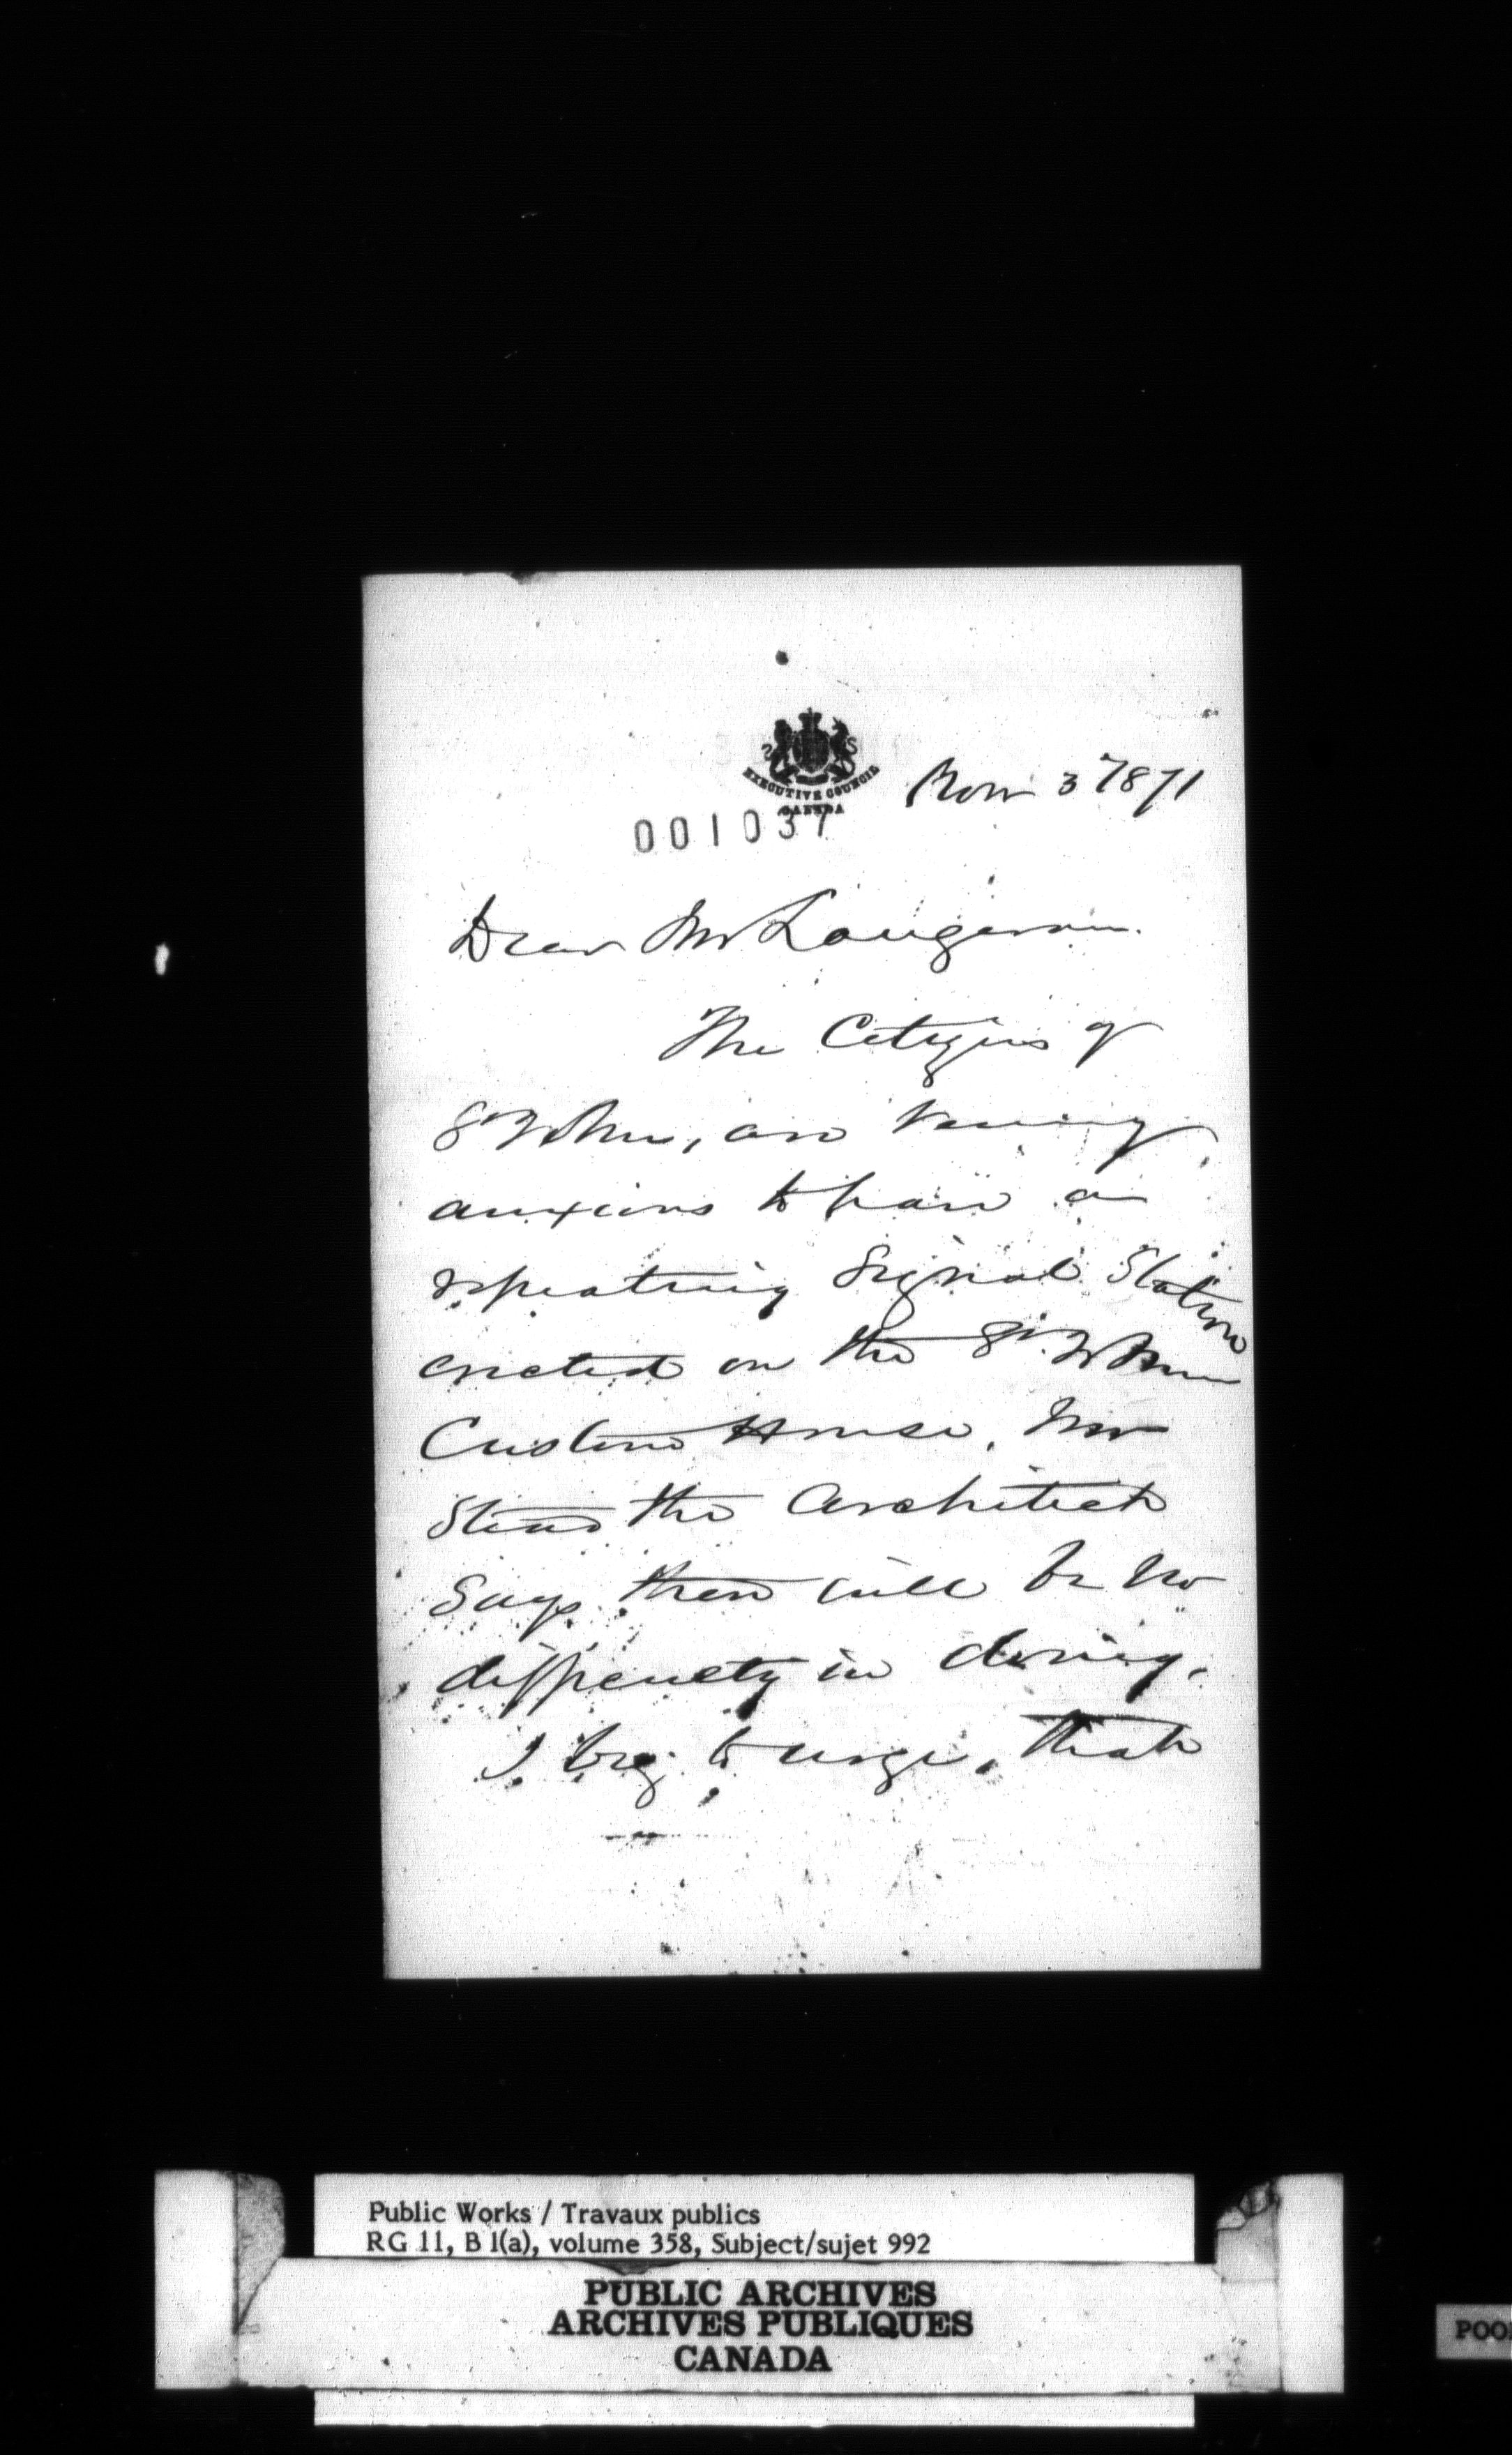 EXECUTIVE COUNCIL
CANADA
Nov 3 1871
001037
Dear Mr Langevin.
The Citizens of
St John, are very
anxious to have a
repeating Signal Station
erected on the St. John
Custom House, Mr
Stead the Architect
Says there will be no
difficulty in doing.
I beg to urge, that
Public Works / Travaux publics
RG 11, B 1(a), volume 358, Subject/sujet 992
PUBLIC ARCHIVES
ARCHIVES PUBLIQUES
CANADA
POO